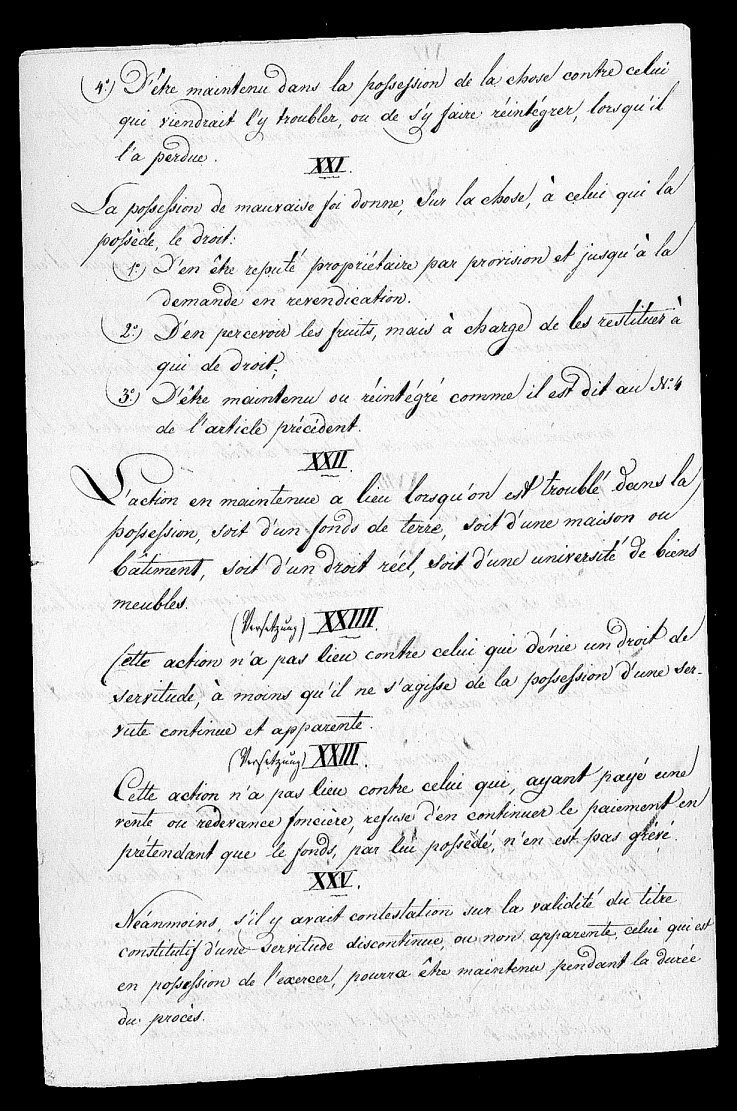 4º.) D'être maintenu dans la possession de la chose contre celui
qui viendrait l'y troubler, ou de s'y faire réintégrer, lorsqu'il
l'a perdue.
XXI.
La possession de mauvaise foi donne, sur la chose, à celui qui la
possède, le droit:
1º.) D'en être reputé propriétaire par provision et jusqu'à la
demande en revendication.
2º.) D'en percevoir les fruits, mais à charge de les restituer à
qui de droit;
3º.) D'être maintenu ou réintégré comme il est dit au Nº. 4
de l'article précédent.
XXII.
L'action en maintenue a lieu lorsqu'on est troublé dans la
possession, soit d'un fonds de terre, soit d'une maison ou
bâtiment, soit d'un droit réel, soit d'une université de biens
meubles.
(Versetzung) XXIIII.
Cette action n'a pas lieu contre celui qui dénie un droit de
servitude, à moins qu'il ne s'agisse de la possession d'une ser-
vute continue et apparente.
(Versetzung) XXIII.
Cette action n'a pas lieu contre celui qui, ayant payé une
rente ou redevance foncière, refuse d'en continuer le paiement en
prétendant que le fonds, par lui possédé, n'en est pas grévé.
XXV.
Néanmoins, s'il y avait contestation sur la validité du titre
constitutif d'une servitude discontinue, ou non apparente, celui qui est
en possession de l'exercer, pourra être maintenu pendant la durée
du procès.